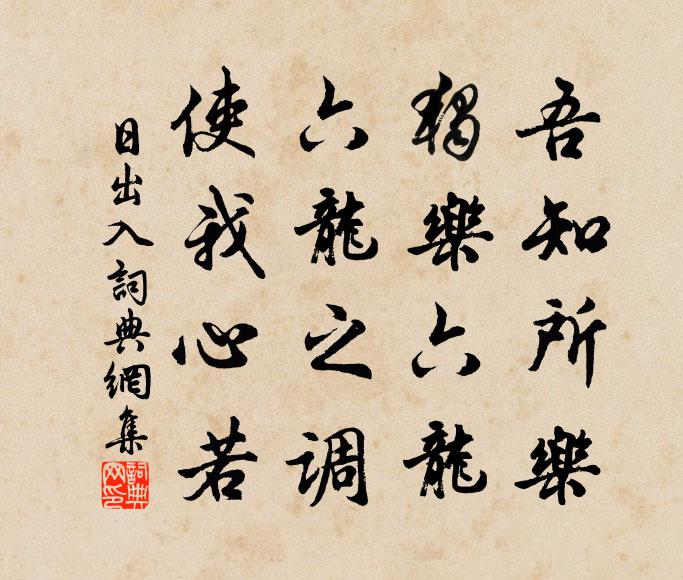 吾知所樂
獨樂六龍
六龍之调
使我心若
日出入詞典網集
詞典网印